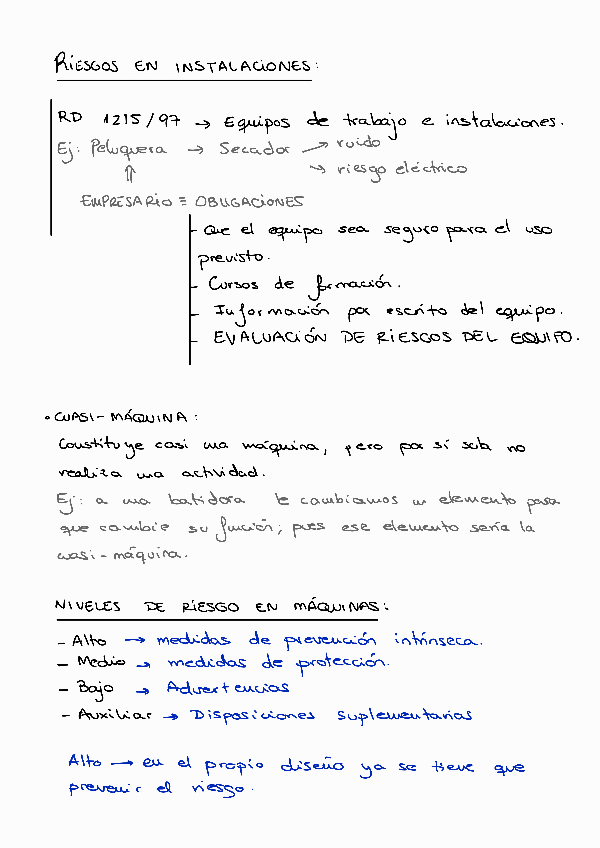 RIESGOS EN INSTALACIONES:
RD 1215/97 → Equipos de trabajo e instalaciones.
Ej: Peluquera → Secador → ruido
→ riesgo eléctrico
⇑
EMPRESARIO ≡ OBLIGACIONES
- Que el equipo sea seguro para el uso
previsto.
- Cursos de formación.
- Información por escrito del equipo.
- EVALUACIÓN DE RIESGOS DEL EQUIPO.
• CUASI-MÁQUINA:
Constituye casi una máquina, pero por sí sola no
realiza una actividad.
Ej: a una batidora le cambiamos un elemento para
que cambie su función, pues ese elemento sería la
cuasi-máquina.
NIVELES DE RIESGO EN MÁQUINAS:
- Alto → medidas de prevención intrínseca.
- Medio → medidas de protección.
- Bajo → Advertencias
- Auxiliar → Disposiciones suplementarias
Alto → en el propio diseño ya se tiene que
prevenir el riesgo.